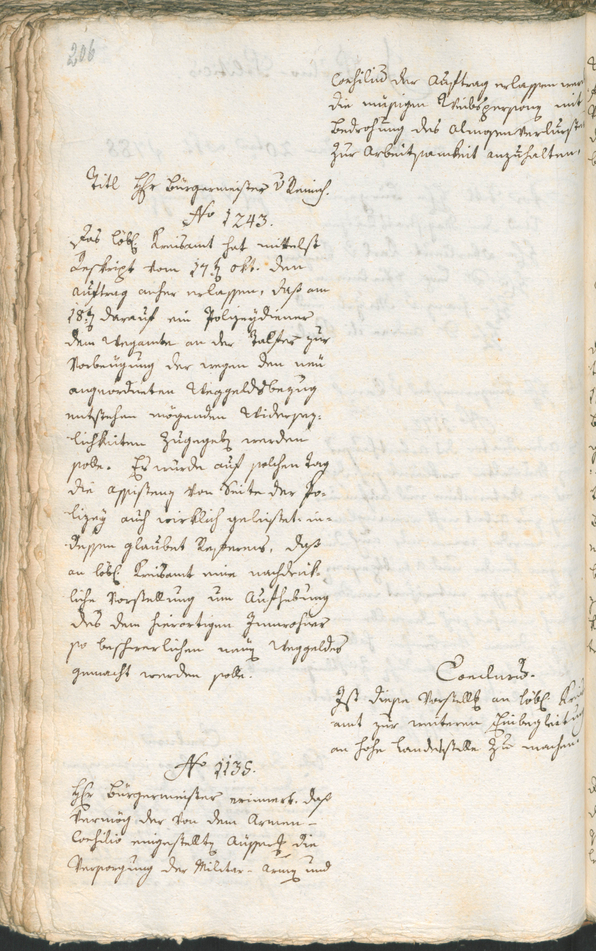 206
Consilio der Auftrag erlassen werde
die müßigen Weibspersonen mit
bedrohung des Almosenverlursts
zur Arbeitsamkeit anzuhalten.
Titl Hr Bürgermeister v Reinisch.
No 1243.
Das löbl Kreisamt hat mittelst
Reskript vom 17ten Okt. den
Auftrag anher erlassen, daß am
18ten darauf ein Polizeydiener
dem Wegamte an der Talfer zur
Vorbeugung der wegen den neu
angeordneten Weggeldsbezug
entstehen mögenden Widersez-
lichkeiten zugegeben werden
solle. Es wurde auf solchen Tag
die Assistenz von Seite der Po-
lizey auch wirklich geleistet: in-
dessen glaubet Referens, daß
an löbl Kreisamt eine nachdrük-
liche Vorstellung um Aufhebung
des dem hierortigen Innwohner
so beschwerlichen neuen Weggeldes
gemacht werden solle.
Conclusum.
Ist diese Vorstellung an löbl Kreis
amt zur weiteren Einbegleitung
an hohe Landesstelle zu machen.
No 1135.
Hr Bürgermeister erinnert, daß
vermög der von dem Armen-
Consilio eingestellten die
Versorgung der Militar- Armen und